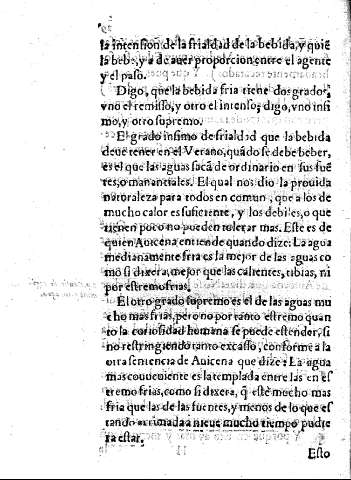 la intension de la frialdad de la bebida, y quiē
la bebe, y a de auer proporcion entre el agente
y el paso.
Digo, que la bebida fria tiene dos grados,
vno el remisso, y otro el intenso; digo, vno infi
mo, y otro supremo.
El grado infimo de frialdad que la bebida
deue tener en el Verano, quādo se debe beber,
es el que las aguas sacā de ordinario en sus fuē
tes, o manantiales. El qual nos dio la prouida
naturaleza para todos en comun, que a los de
mucho calor es suficiente, y los debiles, o que
tienen poco no pueden tolerar mas. Este es de
quien Auicena entiende quando dize: La agua
medianamente fria es la mejor de las aguas co
mo si dixera, mejor que las calientes, tibias, ni
por estremo frias.
El otro grado supremo es el de las aguas mu
cho mas frias, pero no por tanto estremo quan
to la curiosidad humana se puede estender, si
no restringiendo tanto excesso, conforme a la
otra sentencia de Auicena que dize: La agua
mas conueniente es la templada entre las en es
tremo frias, como si dixera, q̄ estè mucho mas
fria que las de las fuentes, y menos de lo que es
tando arrimada a nieue mucho tiempo pudie
ra estar.
Esto